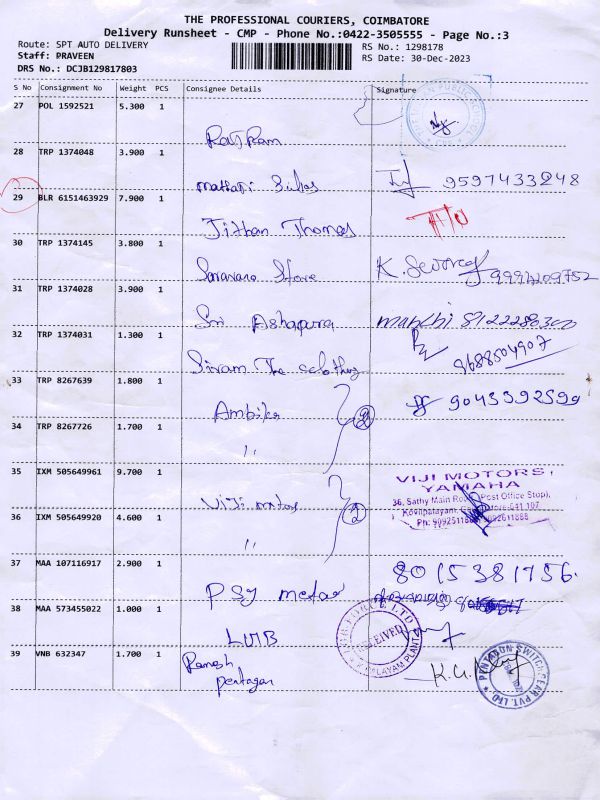 THE PROFESSIONAL COURIERS, COIMBATORE
Delivery Runsheet - CMP - Phone No.:0422-3505555 - Page No.:3
Route: SPT AUTO DELIVERY
Staff: PRAVEEN
DRS No.: DCJB129817803
RS No.: 1298178
RS Date: 30-Dec-2023
S No Consignment No Weight PCS Consignee Details Signature
27 POL 1592521 5.300 1
28 TRP 1374048 3.900 1
9597433248
29 BLR 6151463929 7.900 1
Jithan Thomas
30 TRP 1374145 3.800 1
Saravana Store
31 TRP 1374028 3.900 1
Sri Ashapura
32 TRP 1374031 1.300 1
Sivam The
9688504907
33 TRP 8267639 1.800 1
Ambika 9043392599
34 TRP 8267726 1.700 1
"
35 IXM 505649961 9.700 1
Viji motors
VIJI MOTORS
YAMAHA
36, Sathy Main Road (Post Office Stop),
Kovilpalayam, Coimbatore-641 107
36 IXM 505649920 4.600 1
"
37 MAA 107116917 2.900 1
PSY 8015381756.
38 MAA 573455022 1.000 1
LMB
RECEIVED
39 VNB 632347 1.700 1
Ramesh
pentagan
PENTAGON SWITCHGEAR PVT. LTD.